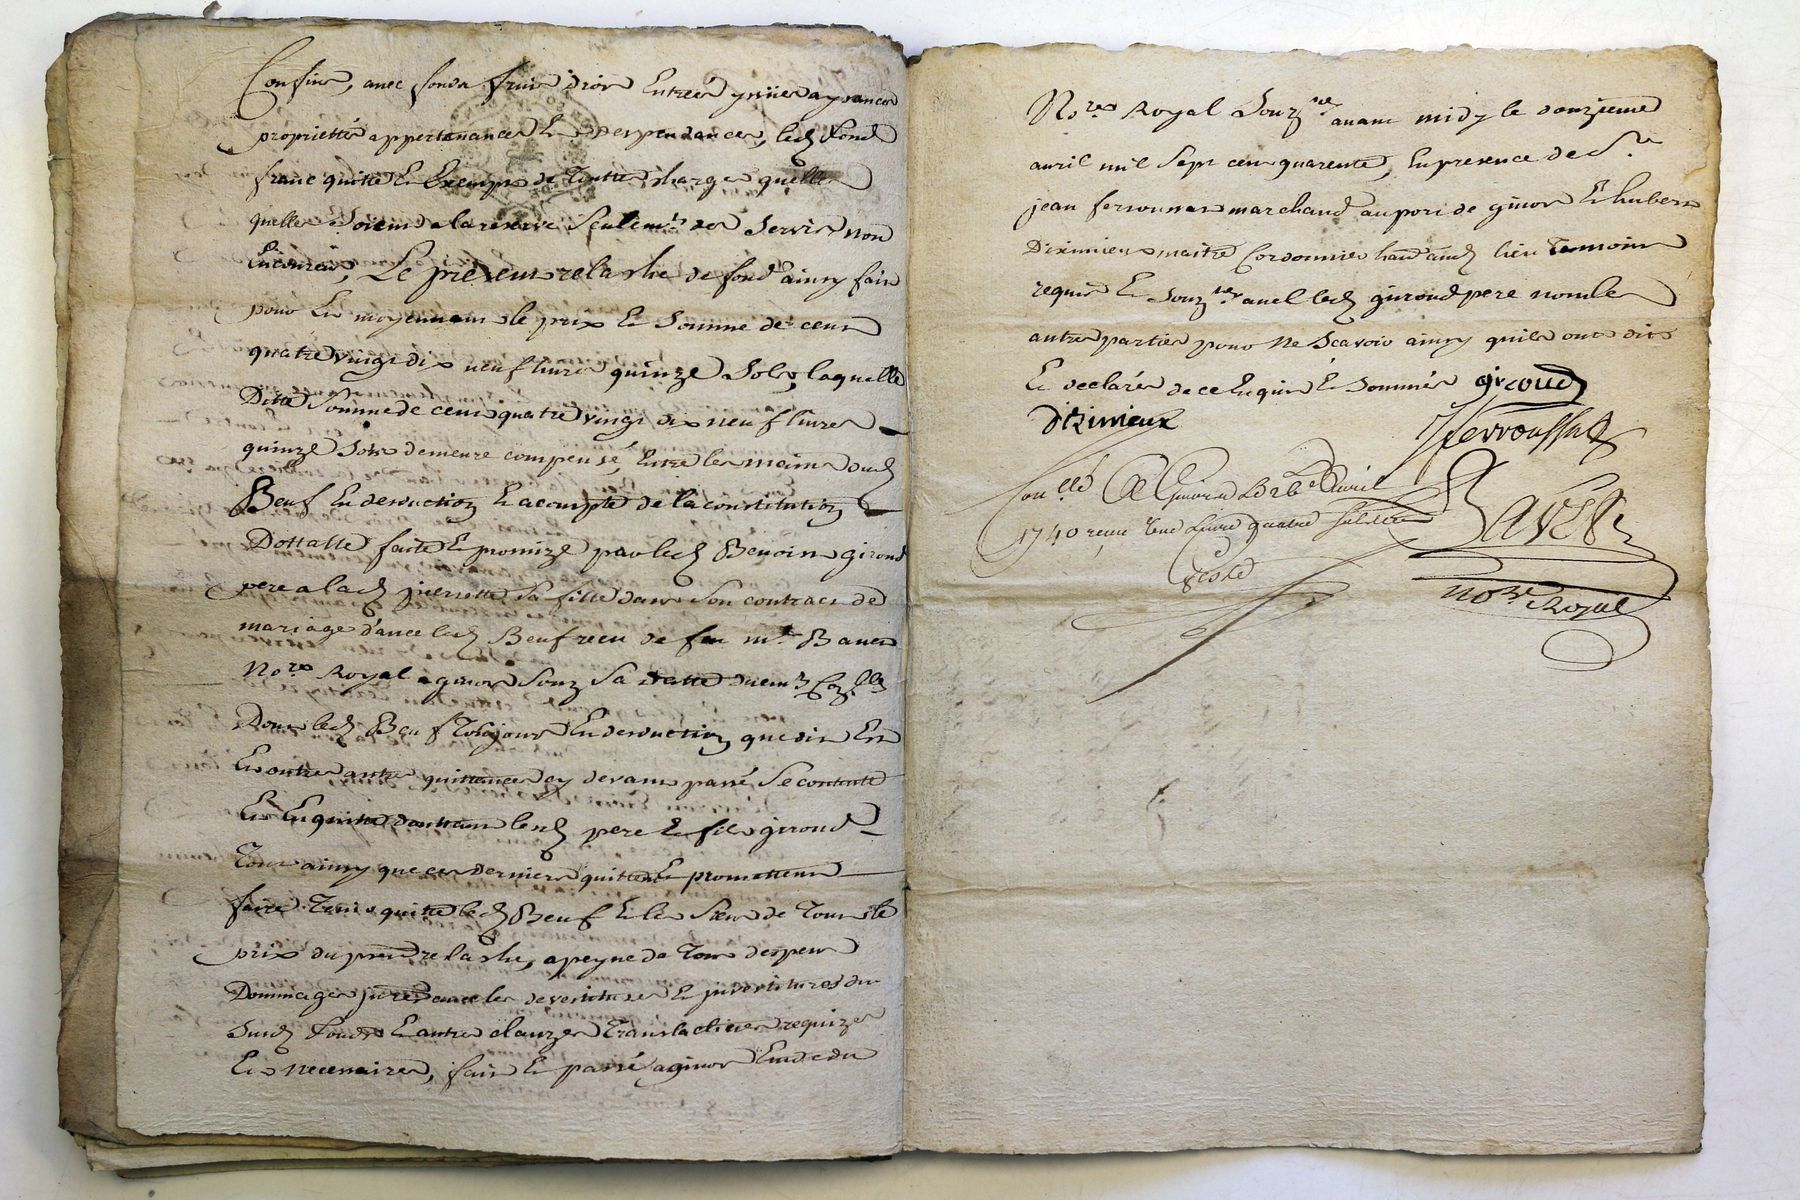 Confins, avec fonds fruis drois Entrées yssües aysances
proprietté appertenances Et despendances, led fond
franc quitte Et Exempt de Toutte charge quelle
quelle Soient a la reserve Seulemt des Servis non
Encourus, Le present relashe de fond ainsy fait
pour Et moyennant le prix Et Somme de cent
quatre vingt dix neuf livres quinze Sols, laquelle
Ditte Somme de cent quatre vingt dix neuf livres
quinze Sols demeure compensé, Entre les mains dud
Beuf En deduction Et acompte de la constitution
Dottalle faite Et promize par led Benoist giroud
pere a lad pierrette Sa fille dans Son contract de
mariage d'avec led Beuf receu de feu me Banet
Nore Royal a givors Souz Sa datte
Dont led Beuf Tousjours En deduction que dit Est
Et outre autre quittances cy devant passé Se contente
Et En quitte d'autant lesd pere Et fils giroud
Tout ainsy que ces derniers quittent Et promettent
faire Tenir quitte led Beuf Et les Siens de Tout le
prix du present relashe, a peyne de Tous despens
Dommages jnterests avec les devestitures Et jnvestitures du
Susd fonds Et autres clauzes Translatives requizes
Et necessaires, fait Et passé a givors Etude du
Nore Royal Souzné avant midy le douzieme
avril mil Sept cent quarente, En presence de Sr
jean ferroussat marchand au port de givors Et hubert
Dizimieux maitre Cordonnier habt aud lieu Temoins
requis Et Souznes avec led giroud pere non les
autres parties pour ne Scavoir ainsy quils ont dit
Et declarés de ce Enquis Et Sommés giroud
dizimieux
Jferroussat
Con.llé A Givors Le avril
1740 reçeu livre quatre
Bavet
nore Royal